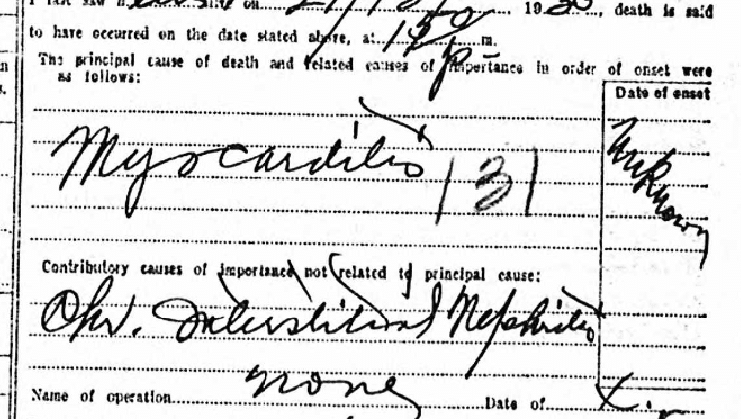 death is said
to have occurred on the date stated above, at m.
The principal cause of death and related causes of importance in order of onset were
as follows:
Date of onset
Myocarditis 131
Unknown
Contributory causes of importance not related to principal cause:
Chr. Interstitial Nephritis
Name of operation none Date of